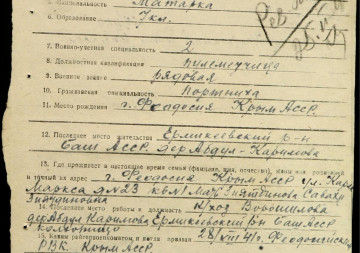 5. Национальность Татарка
6. Образование 7 кл.
7. Военно-учетная специальность 2
8. Должностная квалификация пулеметчица
9. Военное звание рядовая
10. Гражданская специальность Портниха
11. Место рождения г. Феодосия Крым АССР.
12. Последнее место жительства Ермикеевский р-н
Баш АССР. дер Абдул-Каримова
13. Где проживает в настоящее время семья (фамилия, имя, отчество), имена
и точный их адрес г. Феодосия Крым АССР ул. Карл
Маркса д №23 кв №1 Мать
14. Последнее место работы и должность к/хоз Ворошилова
дер Абдул Каримова Ермикеевский Рн Баш АССР
колхозница
15. Каким райвоенкоматом и когда призван 28/VIII 41 г. Феодосийским
РВК. Крым АССР.